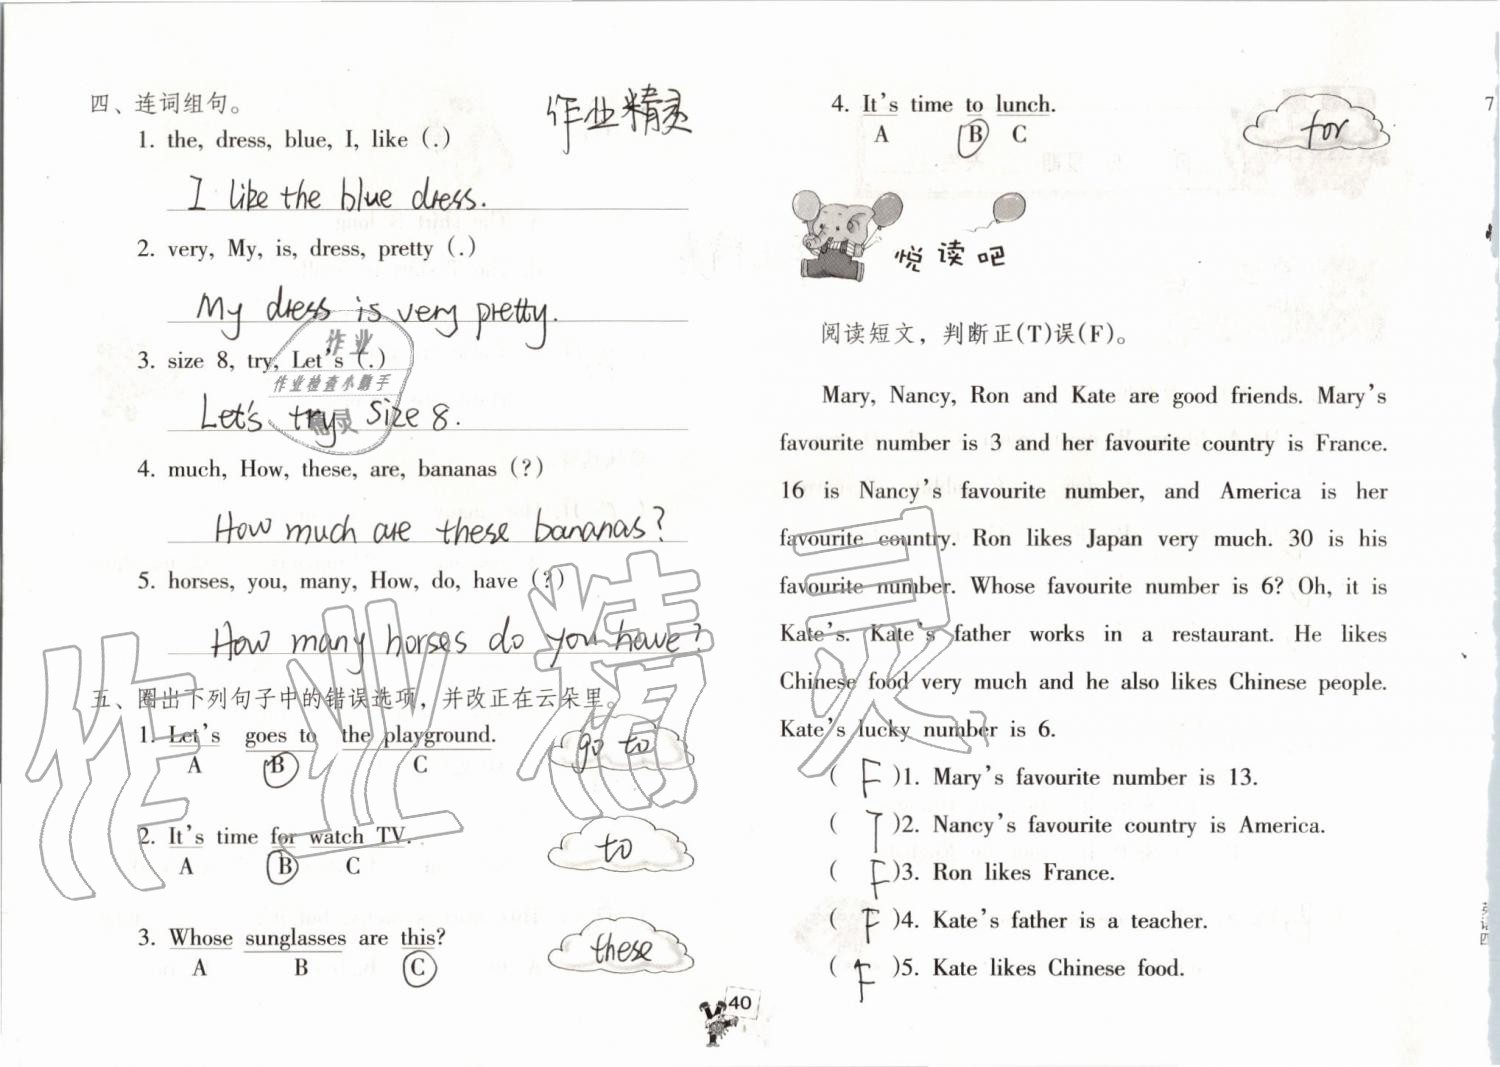 四、连词组句。
作业精灵
1. the, dress, blue, I, like (.)
I like the blue dress.
2. very, My, is, dress, pretty (.)
My dress is very pretty.
3. size 8, try, Let's (.)
作业
作业检查小助手
精灵
Let's try size 8.
4. much, How, these, are, bananas (?)
How much are these bananas?
5. horses, you, many, How, do, have (?)
How many horses do you have?
五、圈出下列句子中的错误选项,并改正在云朵里。
1. Let's goes to the playground.
A B C
go to
2. It's time for watch TV.
A B C
to
3. Whose sunglasses are this?
A B C
these
作业精灵
40
4. It's time to lunch.
A B C
for
悦读吧
阅读短文,判断正(T)误(F)。
Mary, Nancy, Ron and Kate are good friends. Mary's
favourite number is 3 and her favourite country is France.
16 is Nancy's favourite number, and America is her
favourite country. Ron likes Japan very much. 30 is his
favourite number. Whose favourite number is 6? Oh, it is
Kate's. Kate's father works in a restaurant. He likes
Chinese food very much and he also likes Chinese people.
Kate's lucky number is 6.
( F )1. Mary's favourite number is 13.
( T )2. Nancy's favourite country is America.
( F )3. Ron likes France.
( F )4. Kate's father is a teacher.
( F )5. Kate likes Chinese food.
7
英语四